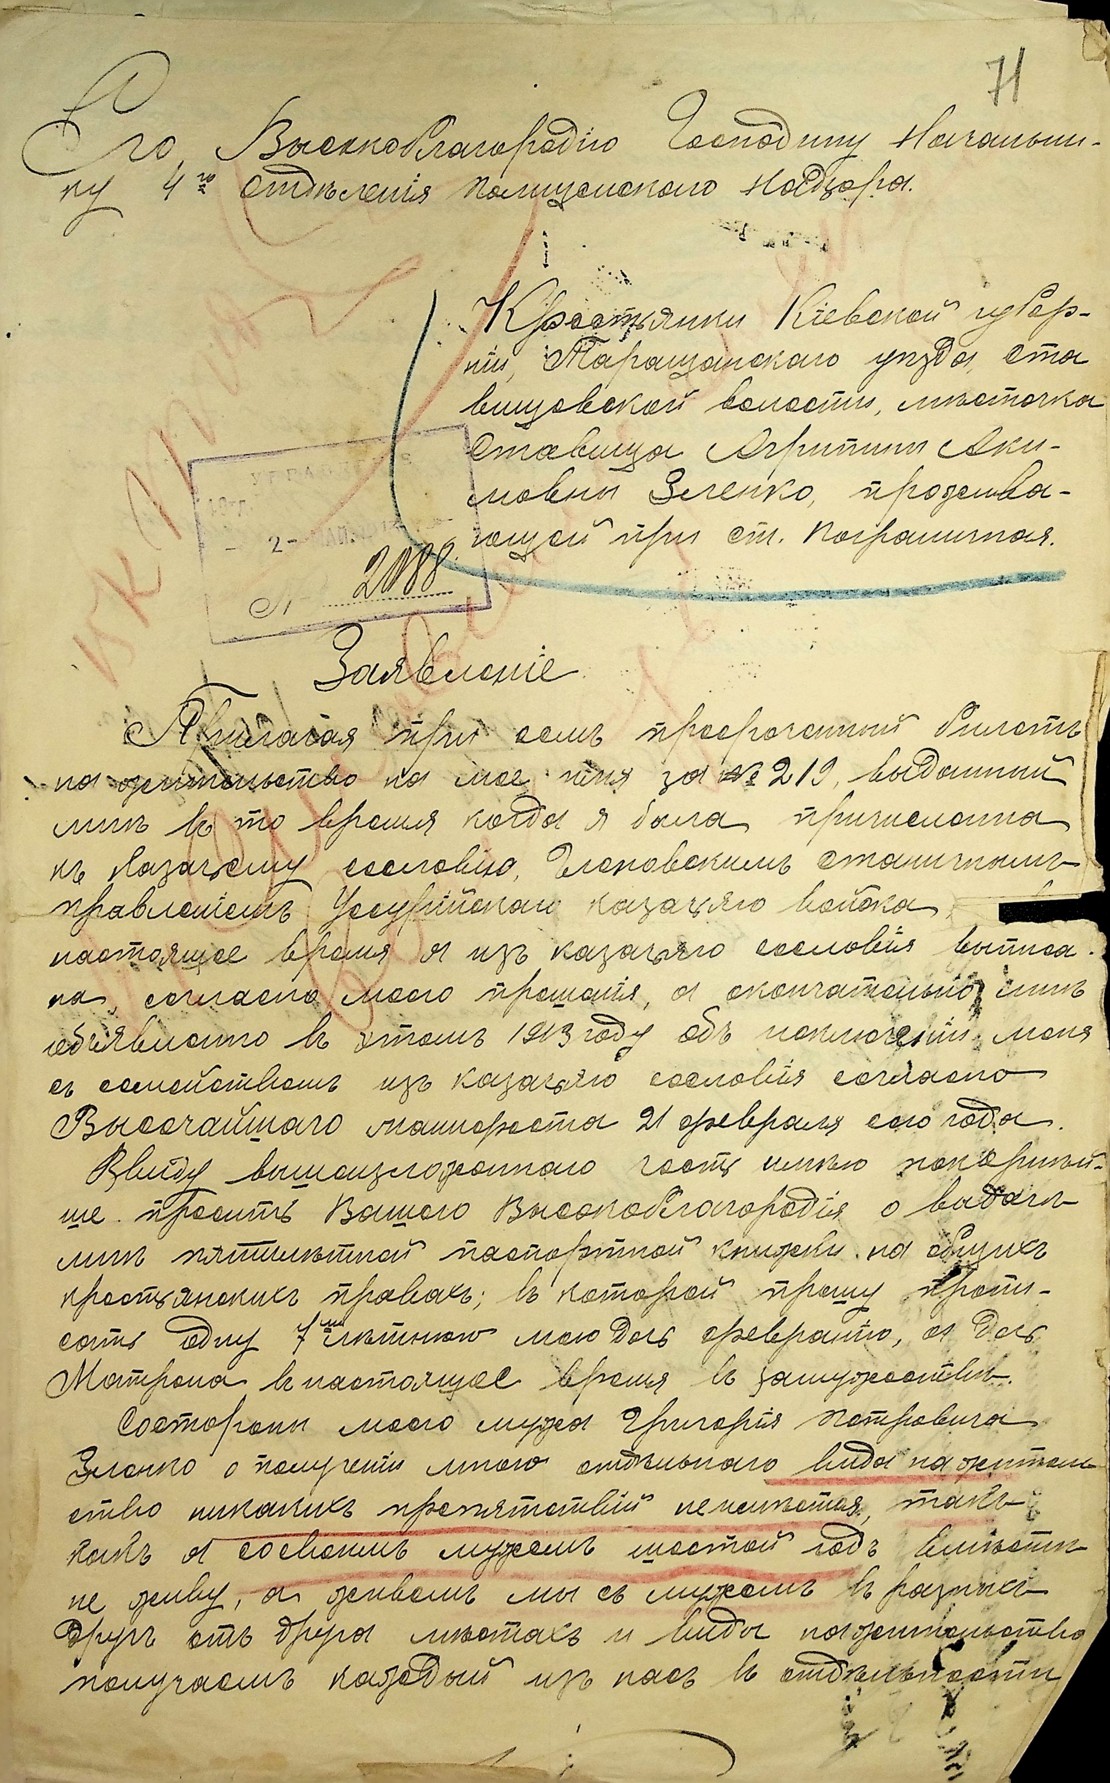 71
Его Высокоблагородію Господину Начальни-
ку 4го Отдѣленія Полицейскаго Надзора.
Крестьянки Кіевской губер-
ніи, Таращанскаго уѣзда, Ста
вищовской волости, мѣстечка
Ставища Агрипины Аки-
мовны Зеленко, прожива-
ющей при ст. Пограничная.
УПРАВЛЕНІЕ
2
2088
Заявленіе
Прилагая при семъ просроченный билетъ
на жительство на мое имя за № 219, выданный
мнѣ въ то время когда я была причисленна
къ казачьему сословію, Гленовскимъ станичнымъ
правленіемъ Уссурійскаго казачьяго войска,
настоящее время я изъ казачьяго сословія выписа-
на, согласно моего прошенія, а окончательно мнѣ
объявленно въ этомъ 1913 году объ исключеніи меня
съ семействомъ изъ казачьяго сословія согласно
Высочайшаго манифеста 21 февраля сего года.
Ввиду вышеизложеннаго честь имѣю покорнѣй-
ше просить Вашего Высокоблагородія о выдачѣ
мнѣ пятилѣтней паспортной книжки на общихъ
крестьянскихъ правахъ; въ которой прошу пропи-
сать одну 7ми лѣтнюю мою дочь Февранію, а дочь
Матрена въ настоящее время въ замужествѣ.
Состороны моего мужа Григорія Петровича
Зеленко о полученіи мною отдѣльнаго вида на житель
ство никакихъ препятствій неимѣется, такъ
какъ я сосвоимъ мужемъ шестой годъ вмѣстѣ
не живу, а живемъ мы съ мужемъ въ разныхъ
другъ отъ друга мѣстахъ и виды на жительство
получаемъ каждый изъ насъ въ отдѣльности